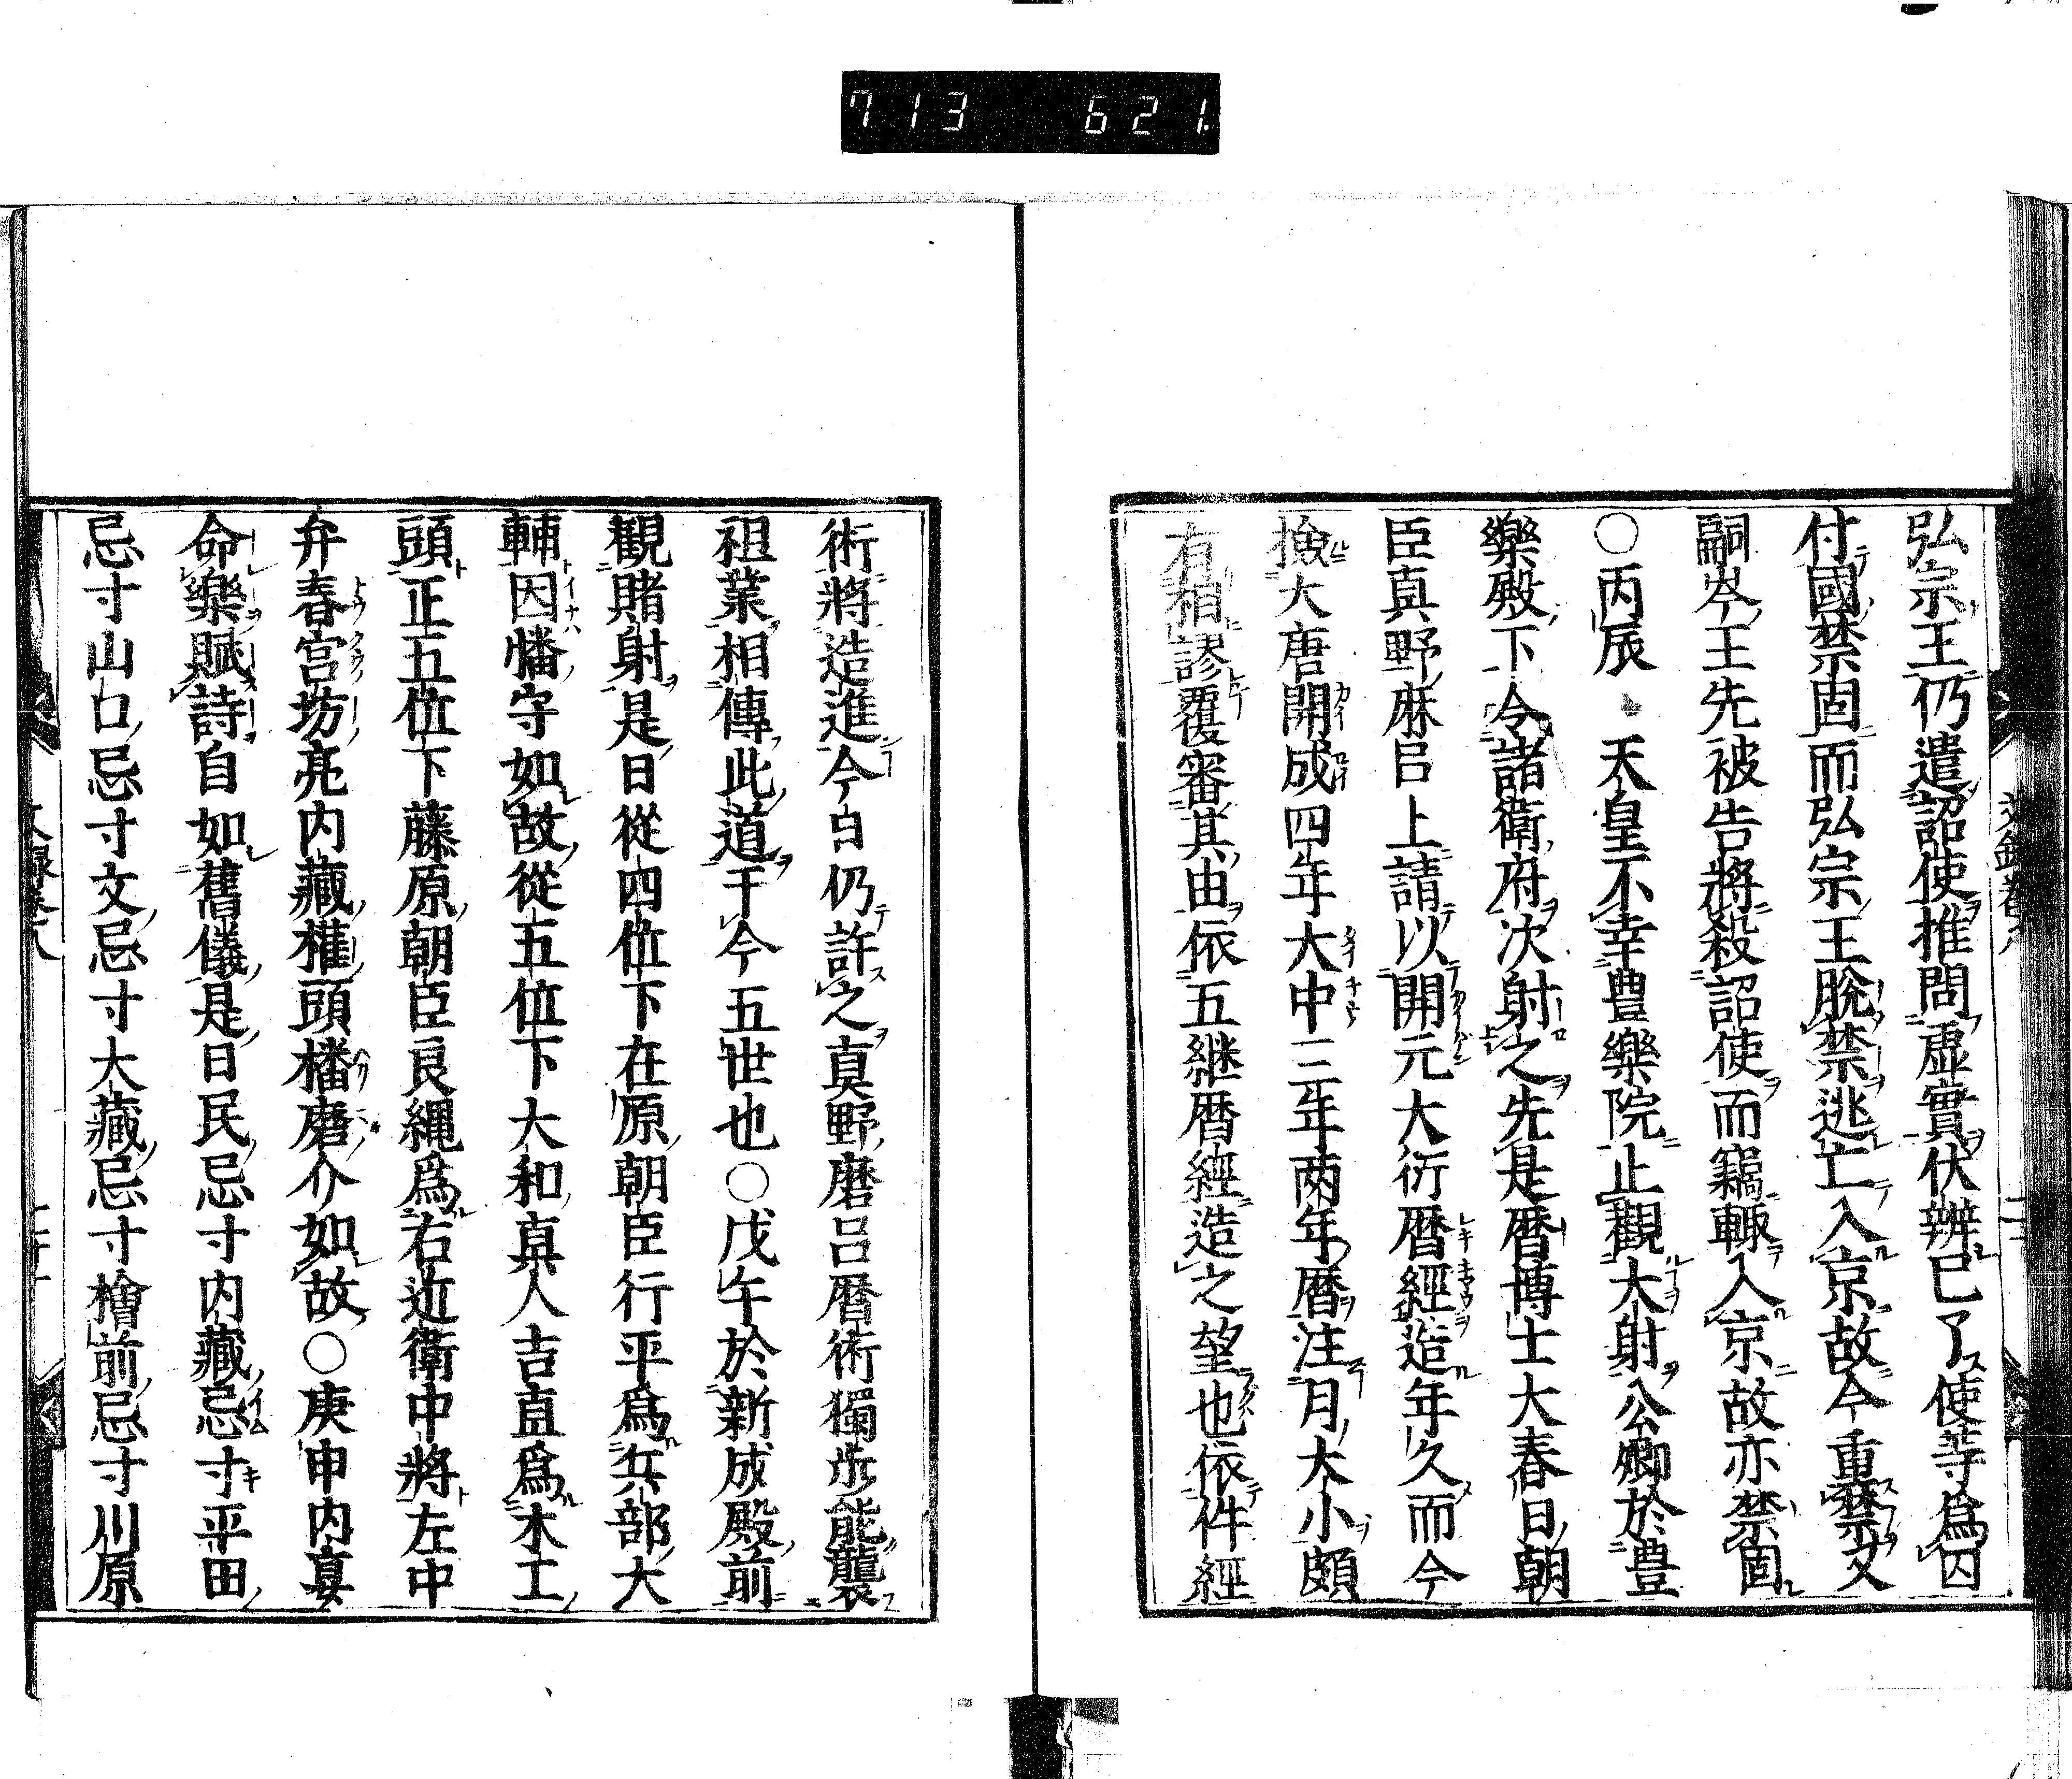 713 621.
弘宗王仍遣詔使推問虚實伏辨已了使等爲囚
付國禁固而弘宗王脫禁逃亡入京故今重禁又
嗣岑王先被告將殺詔使而竊輙入京故亦禁固
○丙辰天皇不幸豊樂院止觀大射公卿於豊
樂殿下令諸衛府次射之先是暦博士大春日朝
臣真野麻呂上請以開元大衍暦經造年久而今
撿大唐開成四年大中三年两年暦注月大小頗
有相謬覆審其由依五継暦經造之望也依件經
術將造進今日仍許之真野磨呂暦術獨步能襲
祖業相傳此道于今五世也○戊午於新成殿前
觀賭射是日從四位下在原朝臣行平爲兵部大
輔因幡守如故從五位下大和真人吉直爲木工
頭正五位下藤原朝臣良縄爲右近衛中將左中
弁春宮坊亮内藏權頭播磨介如故○庚申内宴
命樂賦詩自如舊儀是日民忌寸内藏忌寸平田
忌寸山口忌寸文忌寸大藏忌寸檜前忌寸川原